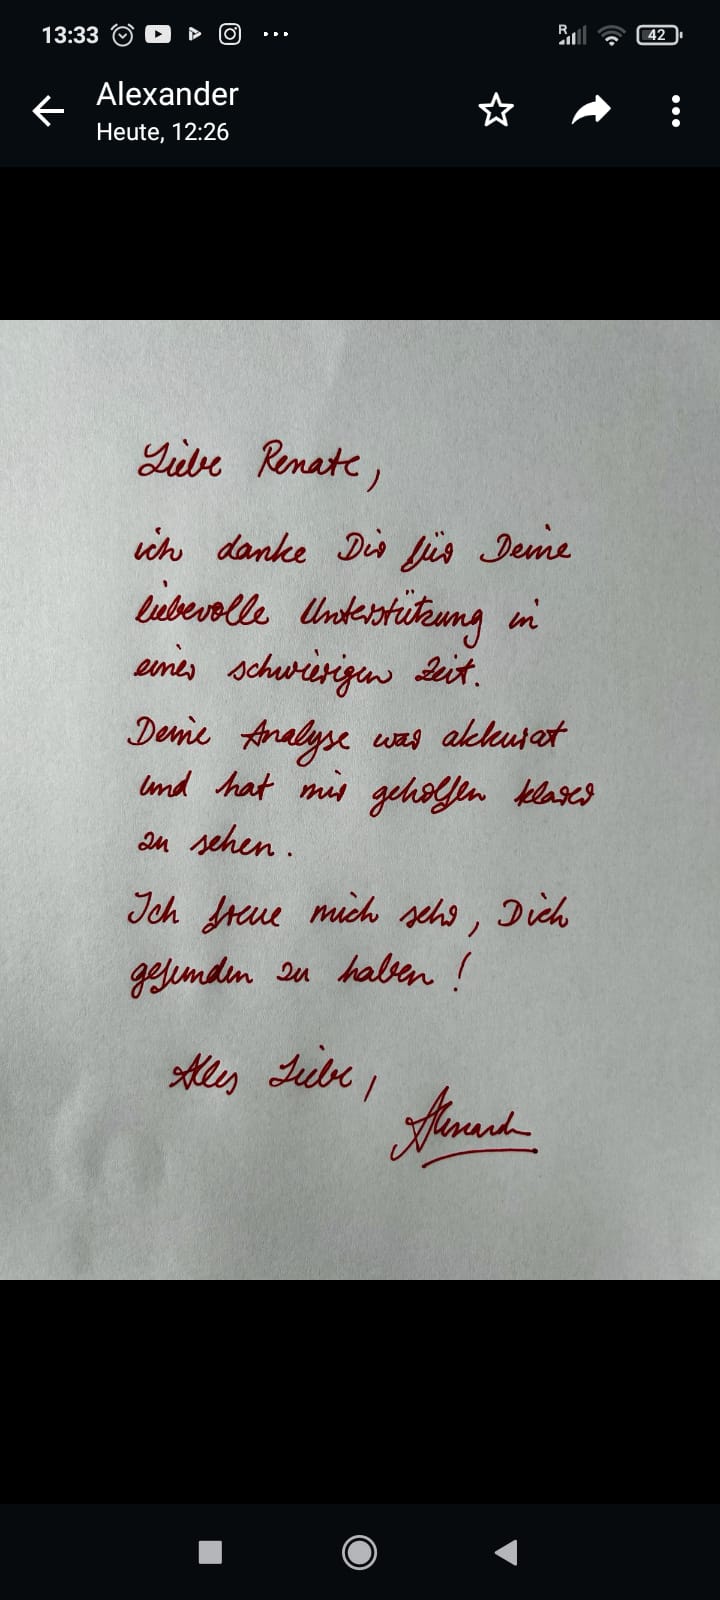 13:33
R
42
Alexander
Heute, 12:26
Liebe Renate,
ich danke Dir für Deine
liebevolle Unterstützung in
einer schwierigen Zeit.
Deine Analyse war akkurat
und hat mir geholfen klarer
zu sehen.
Ich freue mich sehr, Dich
gefunden zu haben!
Alles Liebe,
Alexander